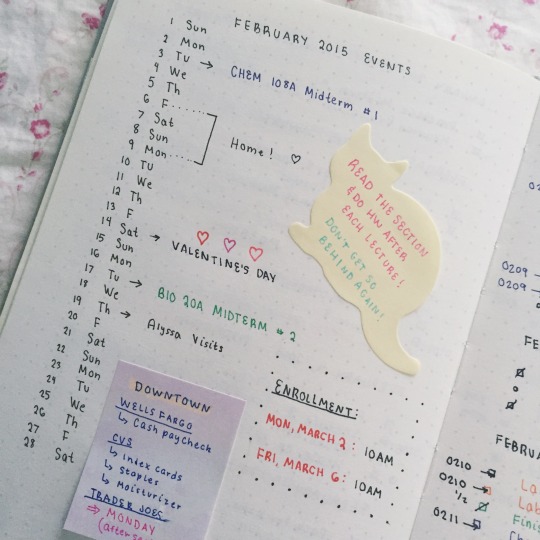 FEBRUARY 2015 EVENTS
1 Sun
2 Mon
3 Tu → CHEM 108A Midterm #1
4 We
5 Th
6 F
7 Sat
8 Sun Home! ♡
9 Mon
10 Tu
11 We
12 Th
13 F
14 Sat → VALENTINE'S DAY
15 Sun
16 Mon
17 Tu → BIO 20A MIDTERM #2
18 We
19 Th → Alyssa Visits
20 F
21 Sat
22 Sun
23 Mon
24 Tu
25 We
26 Th
27 F
28 Sat
READ THE SECTION
& DO HW AFTER
EACH LECTURE!
DON'T GET SO
BEHIND AGAIN!
ENROLLMENT:
MON, MARCH 2: 10AM
FRI, MARCH 6: 10AM
DOWNTOWN
WELLS FARGO
↳ Cash paycheck
CVS
↳ Index cards
↳ Staples
↳ Moisturizer
TRADER JOES
⇒ MONDAY
0209
0209
FE
FEBRUA
0210 La
0210 Lab
1/2 Finis
0211